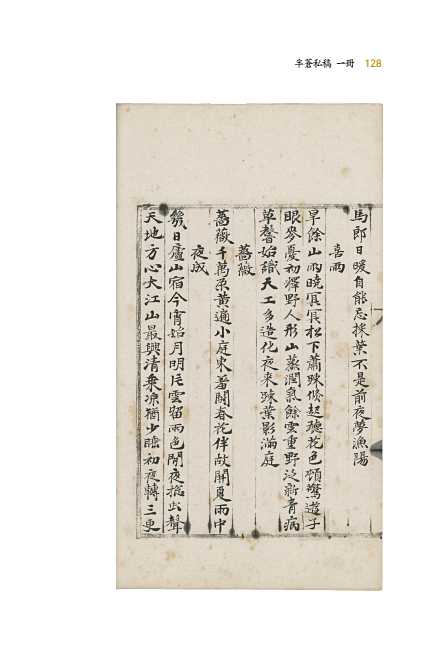 半蒼私稿 一冊 128
馬郎日暖自能忘採葉不是前夜夢漁陽
喜雨
旱餘山雨曉冥冥松下蕭踈倐起聽花色頓驚遊子
眼麥憂初釋野人形山蒸潤氣餘雲重野泛新青病
草馨始識天工多造化夜來踈葉影滿庭
薔薇
薔薇千萬朶黃遍小庭東着開春花伴故開夏雨中
夜成
幾日廬山宿今宵始月明片雲留雨色閒夜出聲
天地方心大江山最興清乘凉猶少睡初夜轉三更